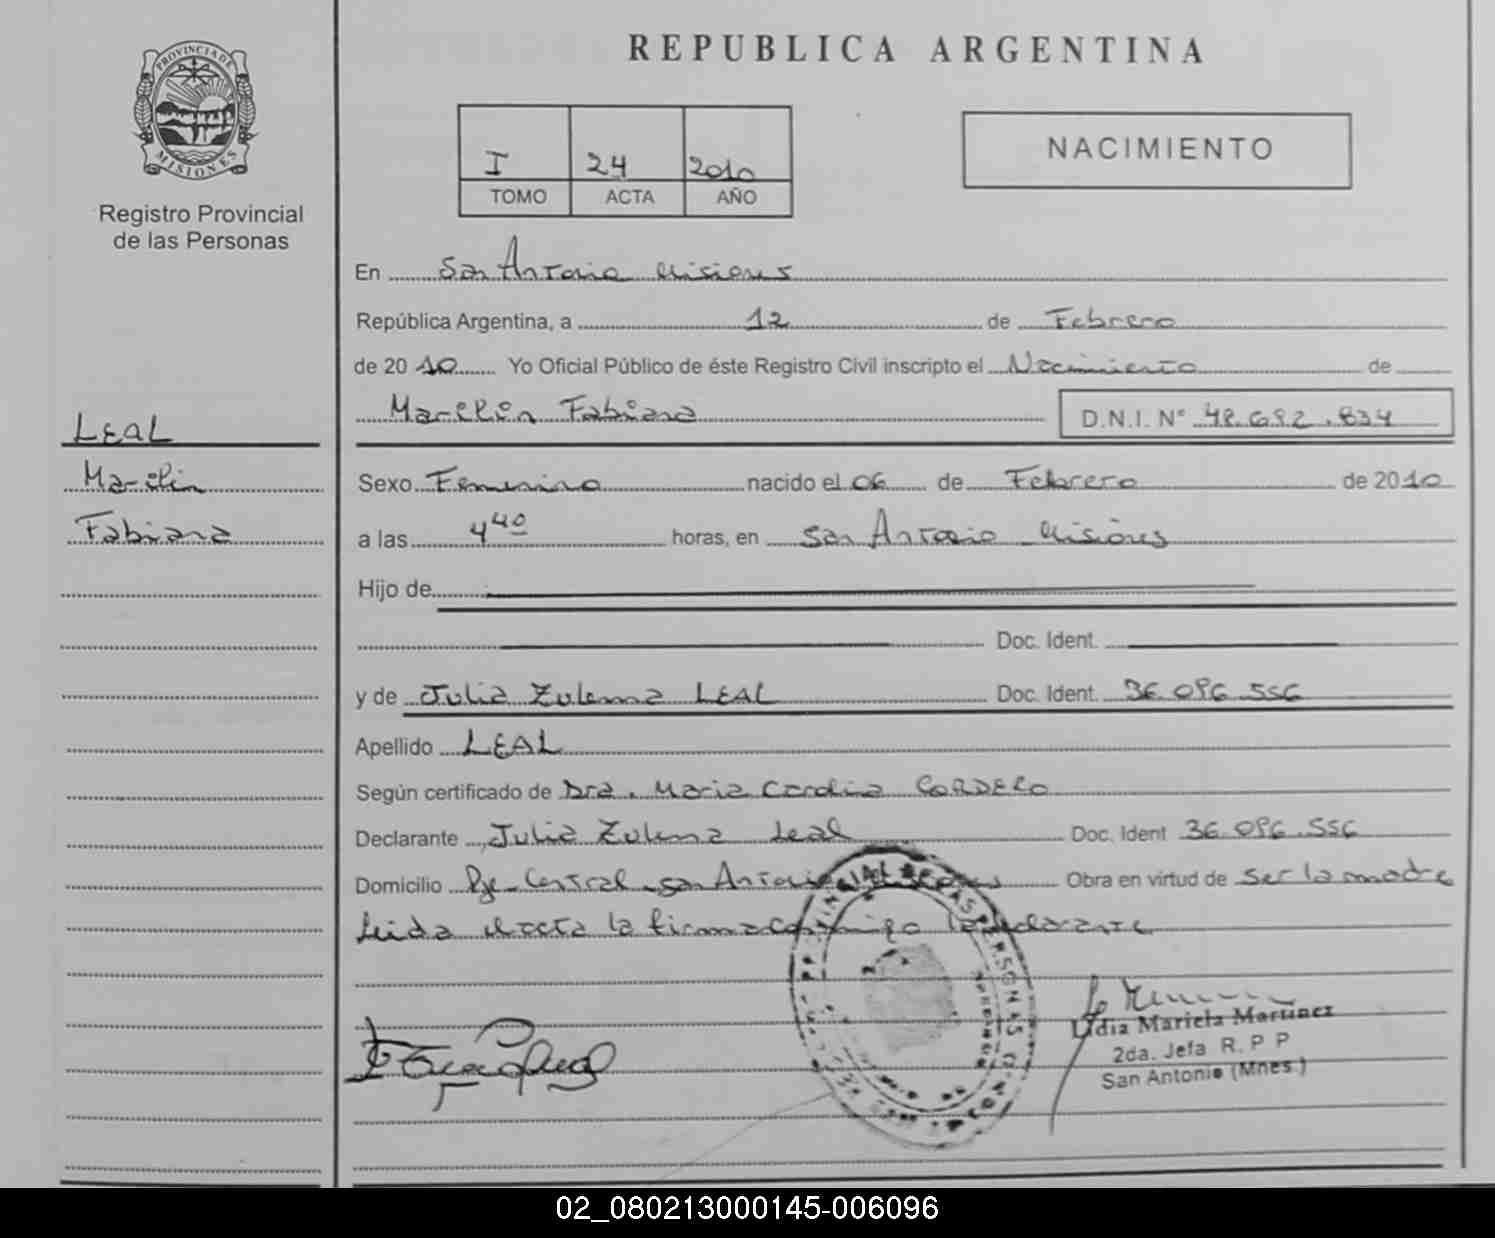 PROVINCIA DE
MISIONES
Registro Provincial
de las Personas
REPUBLICA ARGENTINA
I 24 2010
TOMO ACTA AÑO
NACIMIENTO
En San Antonio Misiones
República Argentina, a 12 de Febrero
de 2010 Yo Oficial Público de éste Registro Civil inscripto el Nacimiento de
Marilin Fabiana D.N.I. N° 48.692.834
LEAL
Marilin
Fabiana
Sexo Femenino nacido el 06 de Febrero de 2010
a las 4 40 horas, en San Antonio Misiones
Hijo de
Doc. Ident.
y de Julia Zulema LEAL Doc. Ident. 36 096 556
Apellido LEAL
Según certificado de Dra. Maria CORDERO
Declarante Julia Zulema Leal Doc. Ident 36 096.556
Domicilio Pje Central San Antonio Misiones Obra en virtud de ser la madre
Leida el acta la firma conmigo la declarante
Lidia Mariela Martinez
2da. Jefa R. P P
San Antonio (Mnes.)
02_080213000145-006096